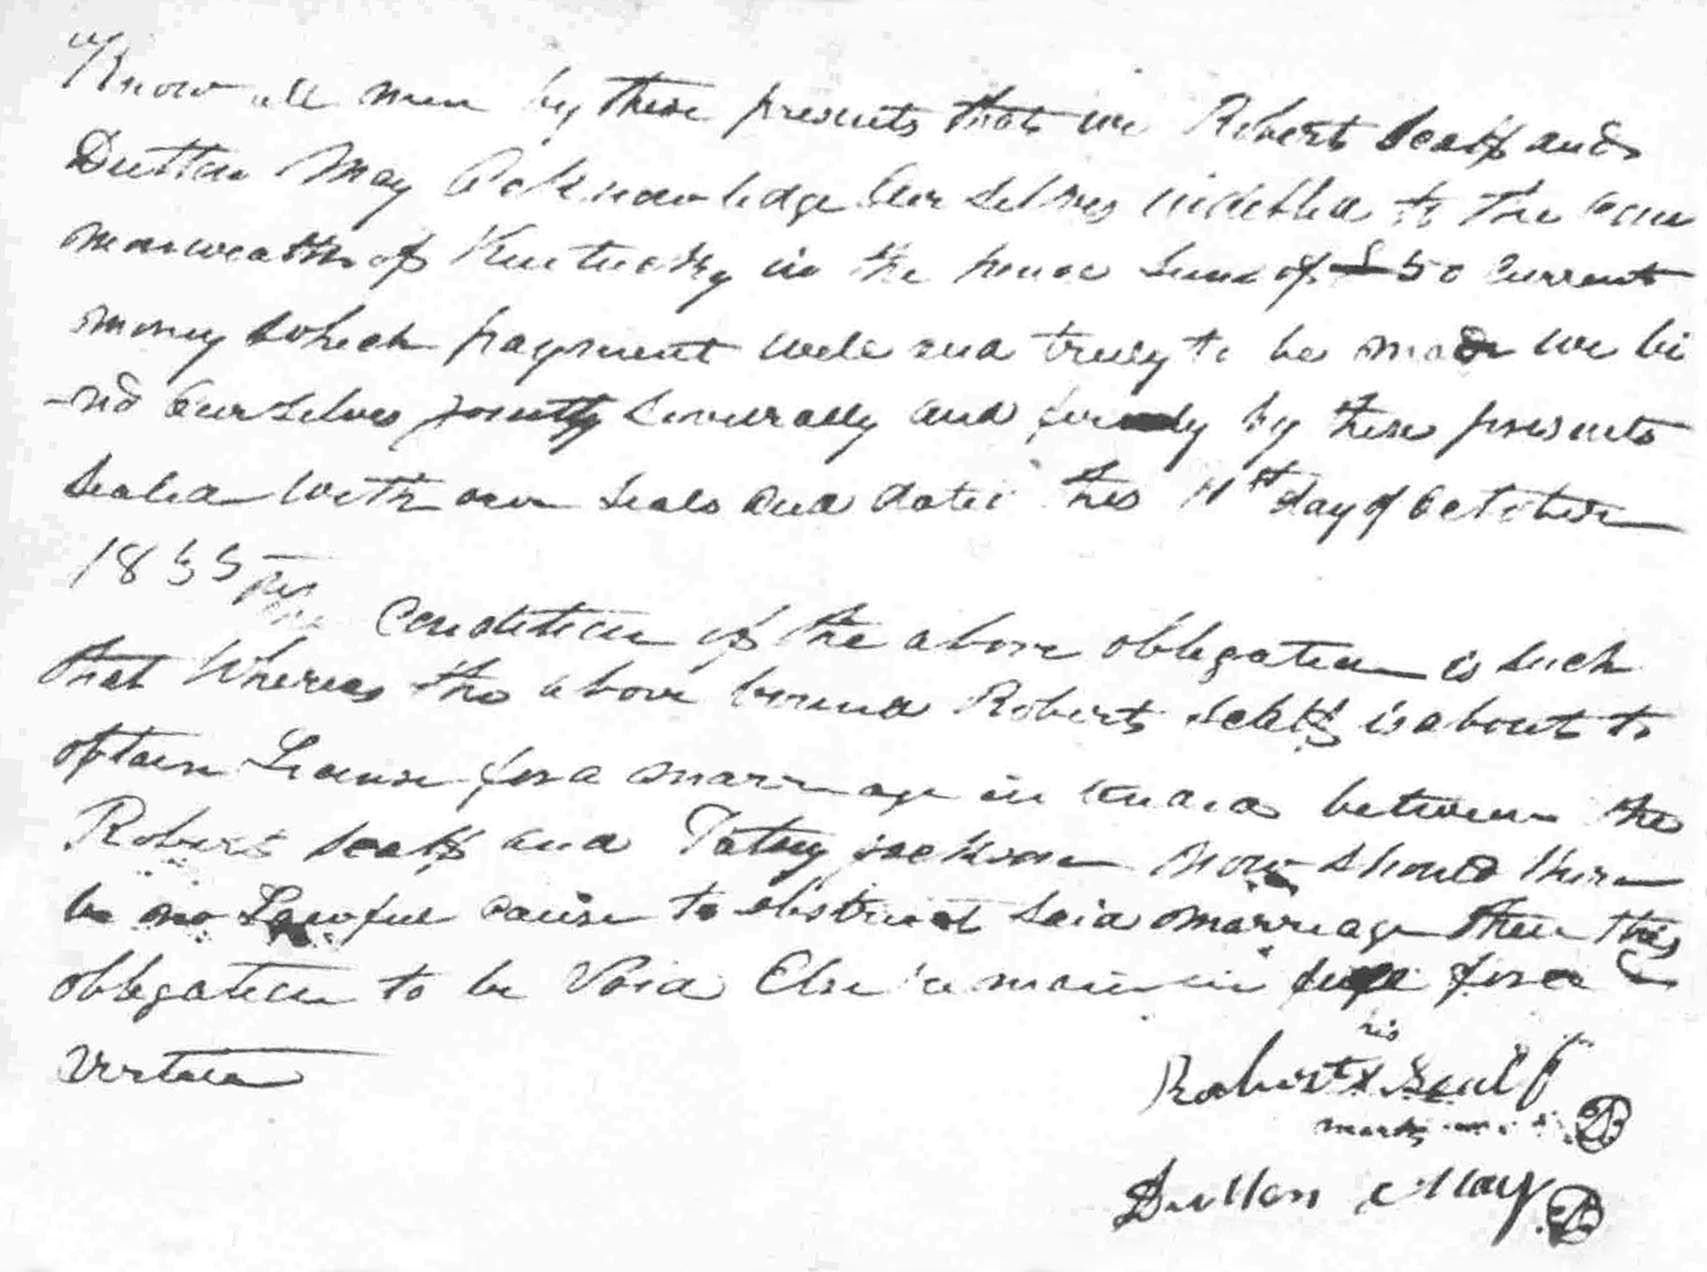 Know all men by these presents that we Robert Scalf and
Dutton May Acknowledge Our Selves indebted to the Com
monwealth of Kentucky in the penal Sum of £50 Current
money which payment well and truly to be made we bi
-nd Ourselves jointly Severally and firmly by these presents
Sealed with our Seals and dated this 11th day of October
18
Condition of the above obligation is Such
that Whereas the above bound Robert Scalf is about to
obtain License for a marriage in between the
Robert Scalf and Patsy jackson Now should there
be no Lawful cause to obstruct Said marriage then this
obligation to be Void Else remain in full force &
Virtue
his
Robert X Scalf
mark
Dutton May